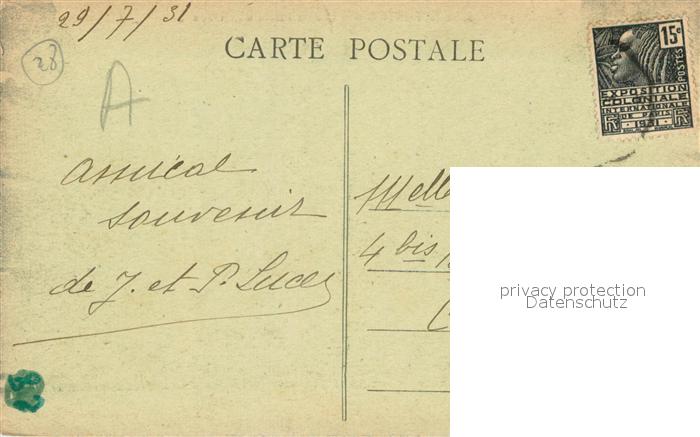 29/7/31
28
CARTE POSTALE
A
15c
POSTES
EXPOSITION
COLONIALE
INTERNATIONALE
DE PARIS
RF 1931 RF
amical
souvenir
de J. et P. Luce
Melle
4 bis
privacy protection
Datenschutz